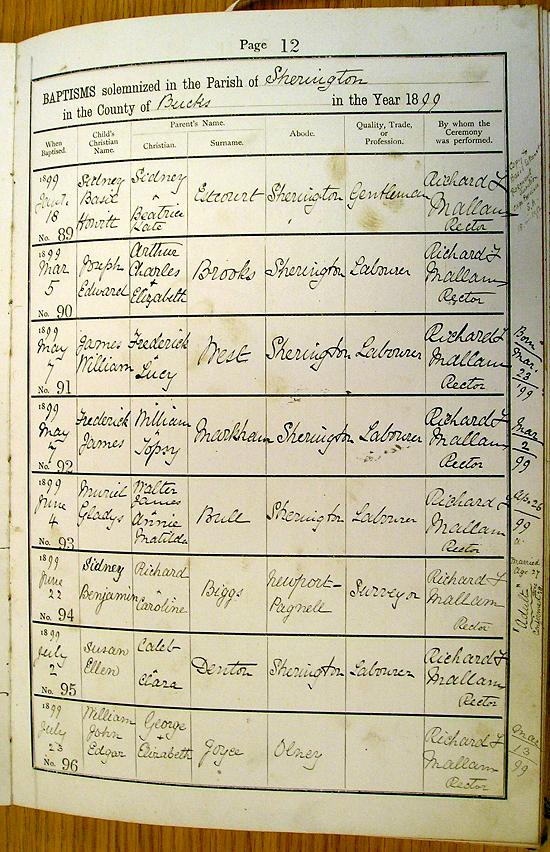 Page 12
BAPTISMS solemnized in the Parish of Sherington
in the County of Bucks in the Year 1899
When Baptised.
Child's Christian Name.
Parent's Name.
Christian.
Surname.
Abode.
Quality, Trade, or Profession.
By whom the Ceremony was performed.
1899
Jany.
18
No. 89
Sidney
Basil
Howitt
Sidney
Beatrice
Kate
Estcourt
Sherington
Gentleman
Richard L
Mallam
Rector
1899
Mar
5
No. 90
Joseph
Edward
Arthur
Charles
+
Elizabeth
Brooks
Sherington
Labourer
Richard L
Mallam
Rector
1899
May
7
No. 91
James
William
Frederick
+
Lucy
West
Sherington
Labourer
Richard L
Mallam
Rector
Born
Mar.
23
'99
1899
May
7
No. 92
Frederick
James
William
+
Topsy
Markham
Sherington
Labourer
Richard L
Mallam
Rector
Mar
2
99
1899
June
4
No. 93
Muriel
Gladys
Walter
James
+
Annie
Matilda
Bull
Sherington
Labourer
Richard L
Mallam
Rector
26
99
1899
June
22
No. 94
Sidney
Benjamin
Richard
+
Caroline
Biggs
Newport-
Pagnell
Surveyor
Richard L
Mallam
Rector
Married
Age 27
"Adult"
1899
July
2
No. 95
Susan
Ellen
Caleb
Clara
Denton
Sherington
Labourer
Richard L
Mallam
Rector
1899
July
23
No. 96
William
John
Edgar
George
+
Elizabeth
Joyce
Olney
Richard L
Mallam
Rector
Mar
13
99